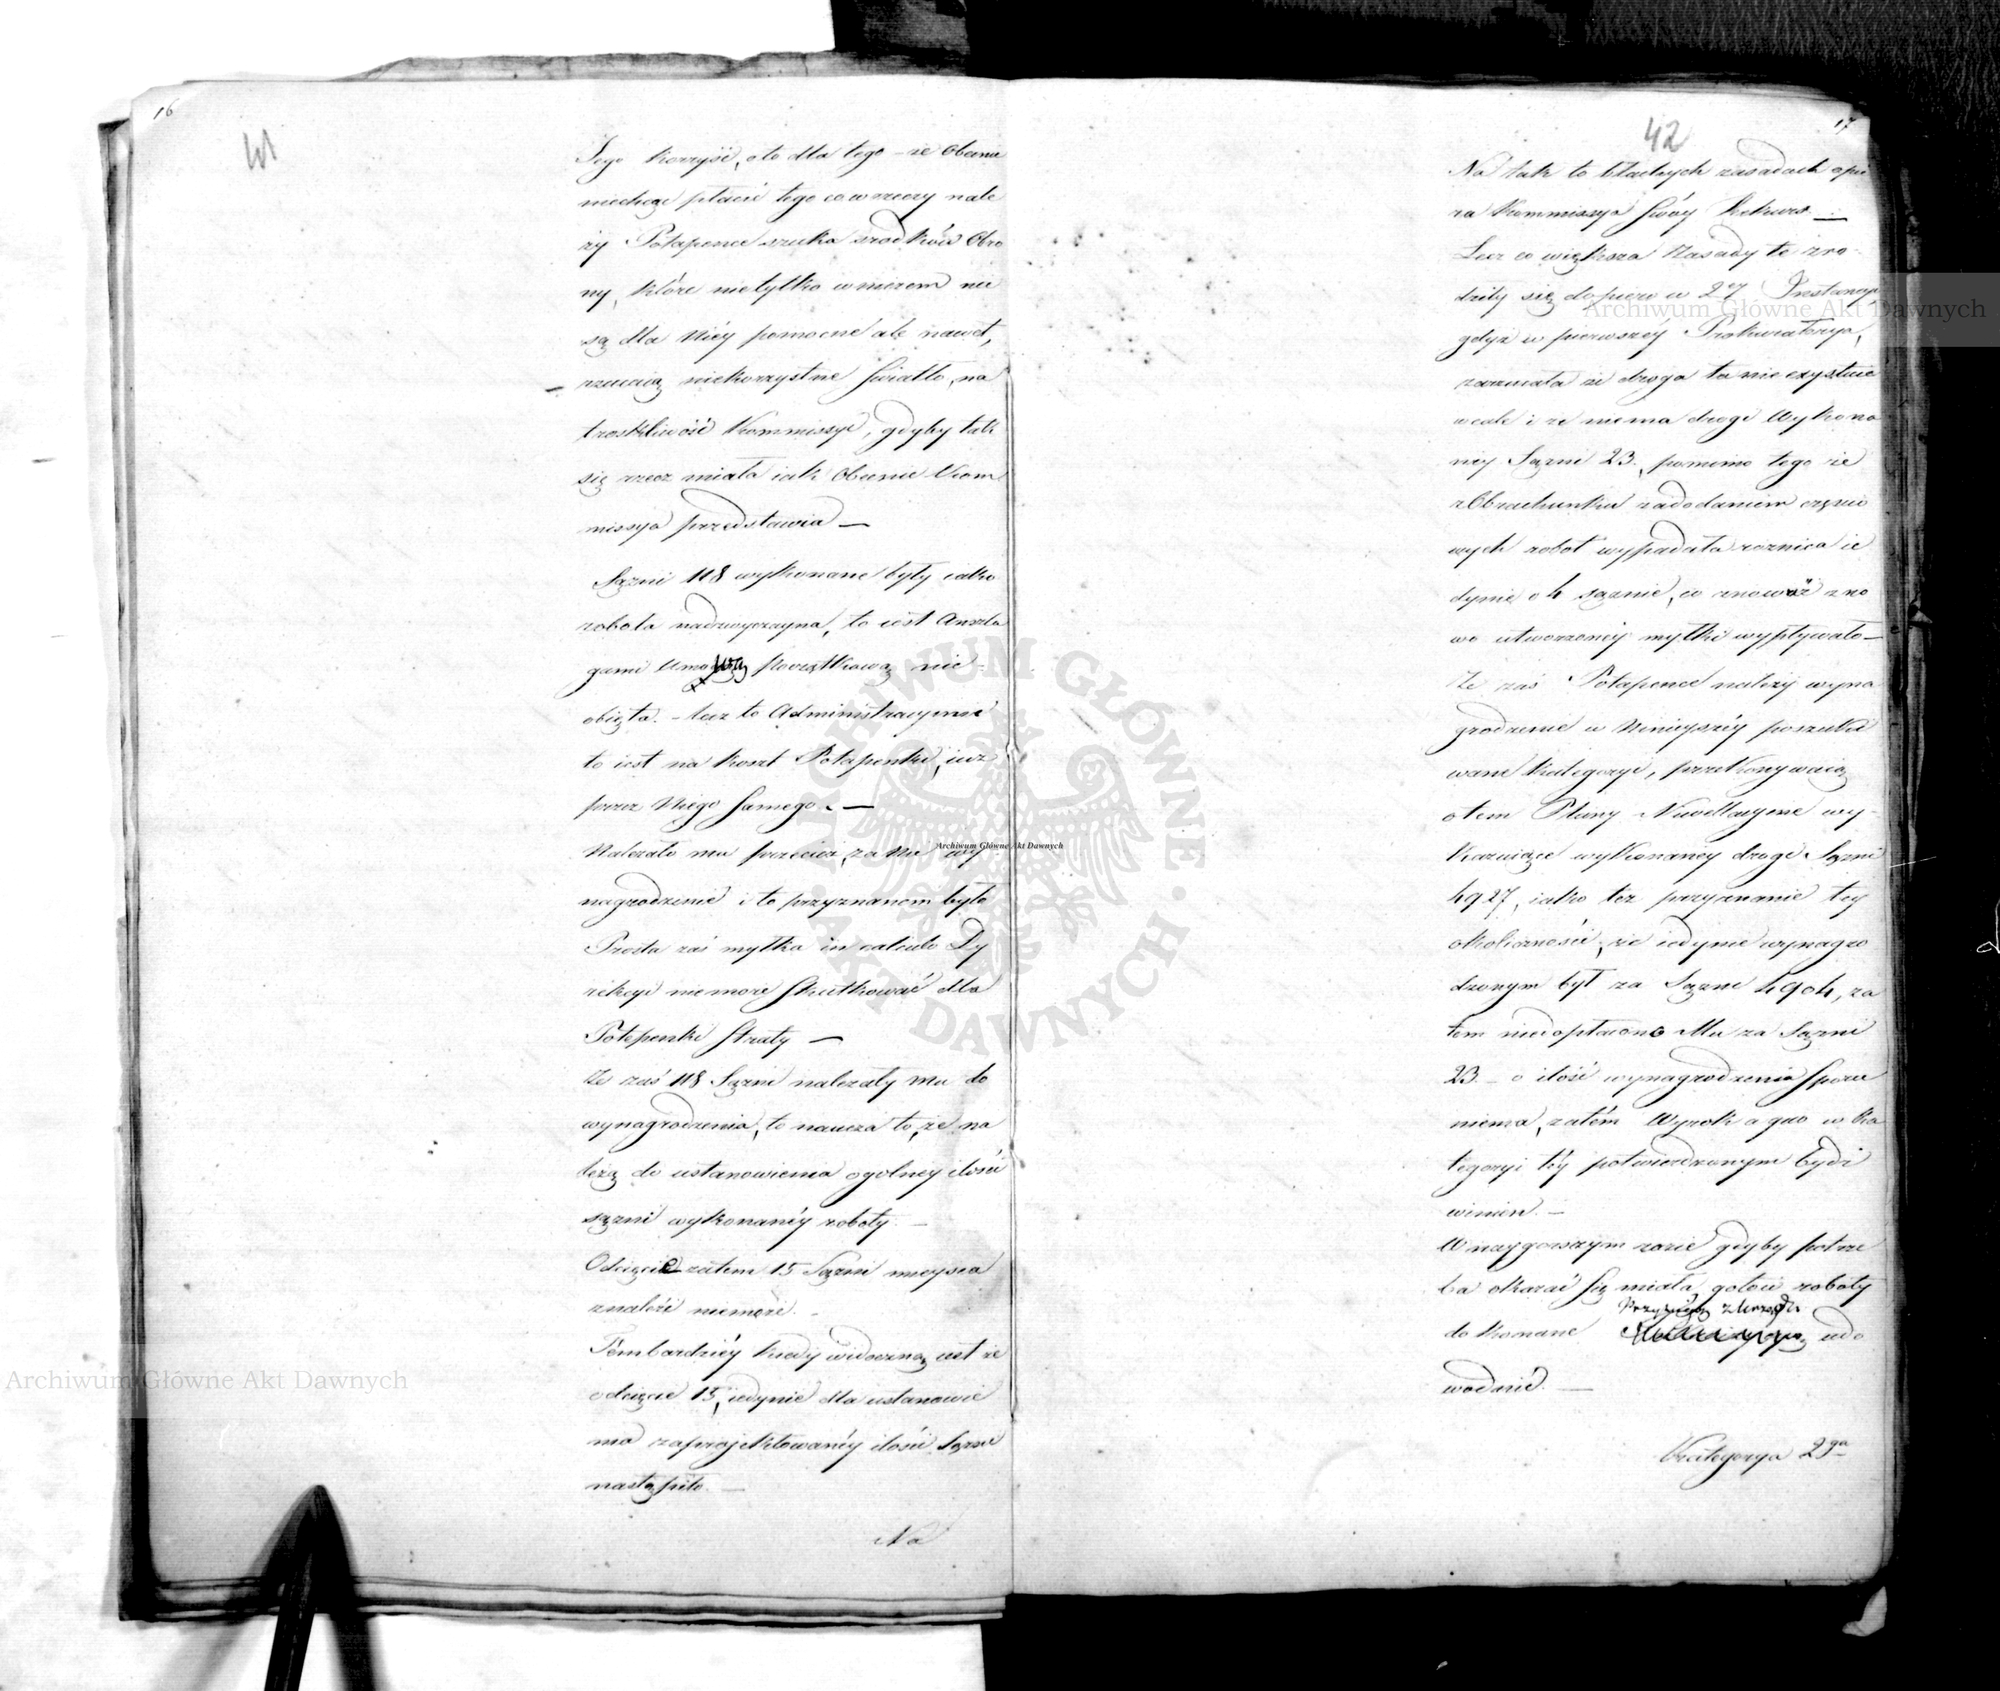 16
Jego korzyść, a to dla tego – że Obecna
niechcąc płacić tego co w rzeczy nale
ży Potapence szuka środków Obro
ny, które nietylko w niczem nie
są dla Niéy pomocne ale nawet,
rzucaią niekorzystne Swiatło, na
troskliwość Kommissyi, gdyby tak
się rzecz miała iak Obecnie Kom
missya przedstawia —
Sążni 118 wykonane były iako
robota nadzwyczayna, to iest Anszla
gami Umową początkową nie-
obięta. – lecz to Administracyinie
to iest na koszt Potapenki, iuż
przez Niego Samego. —
Należało mu przecież, za Nie wy-
nagrodzenie i to przyznanem było
Prosta zaś myłka in calculo Dy
rekcyi niemoże Skutkować dla
Potapenki Straty —
Że zaś 118 Sążni należały mu do
wynagrodzenia, to naucza to, że na
leżą do ustanowienia ogolney ilości
sążni wykonanéy roboty. —
Odcięcie zatem 15 Sążni mieysca
znaleźć niemoże. –
Tembardziéy kiedy widoczną iest że
odcięcie 15, iedynie dla ustanowie
nia zaprojektowanéy ilości Sążni
nastąpiło. —
Na
42
17
Na tak to błachych zasadach opie
ra Kommissya Swóy Rekurs. —
Lecz co większa Zasady te zro-
dziły się dopiero w 2ey Instancyi
gdyż w pierwszéy Prokuratorya,
zarzucała że droga ta nie exystuie
wcale i że niema drogi Wykona
ney Sążni 23., pomimo tego że
z Obrachunku zadodaniem częścio
wych robot wypadała roznica ie
dynie o 4 sążnie, co znowuż z no
wo utworzonéy myłki wypływało —
Że zaś Potapence należy wyna
grodzenie w Ninieyszéy poszuki
wane Kategoryi, przekonywaią
o tem Plany Niwellacyine wy-
kazuiące wykonanéy drogi Sążni
4927, iako też przyznanie tey
okoliczności, że iedynie wynagro
dzonym był za Sążni 4904, za
tem niedopłacono Mu za Sążni
23. – o ilość wynagrodzenia Sporu
niema, zatém Wyrok a quo w Ka
tegoryi téy potwierdzonym bydź
winien. —
W naygorszym razie gdyby potrze
ba okazać się miała, gotów roboty
Przysięgą
dokonane udo
wodnić. —
Kategorya 2ga
Archiwum Główne Akt Dawnych
Archiwum Główne Akt Dawnych
Archiwum Główne Akt Dawnych
ARCHIWUM GŁÓWNE
AKT DAWNYCH